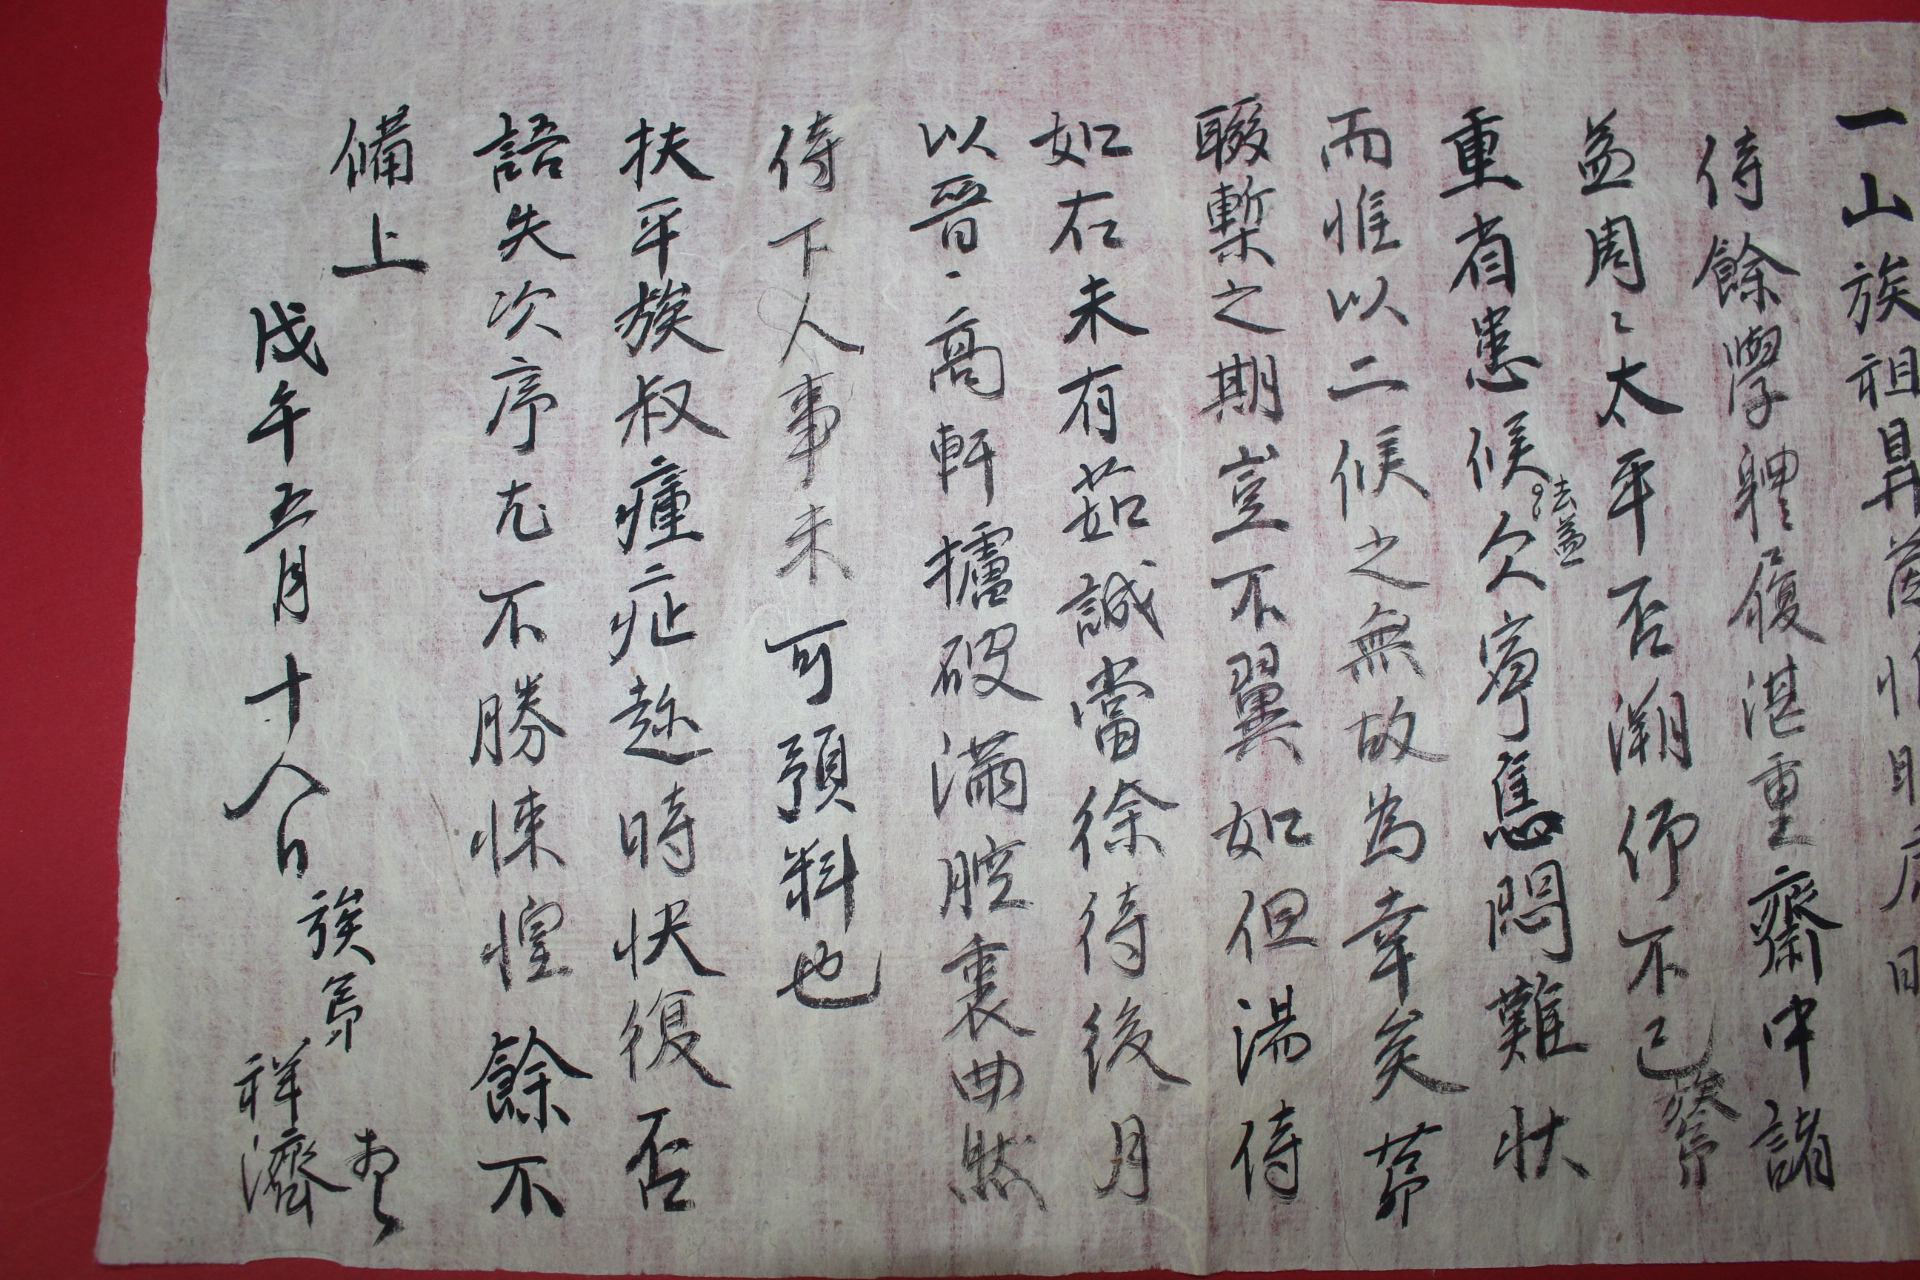 一山族祖昇
侍餘學體履湛重齋中諸
益周〻太平否溯仰不已 族弟
重省患候欠寧焦悶難狀
法益
而惟以二候之無故為幸矣 茆
聯槧之期豈不翼如但湯侍
如右未有茹誠當徐待後月
以晉高軒攄破滿腔裏曲然
侍下人事未可預料也
扶平族叔瘇症趂時快復否
語失次序尤不勝悚惶餘不
備上
戊午五月十八日
族弟
祥濟